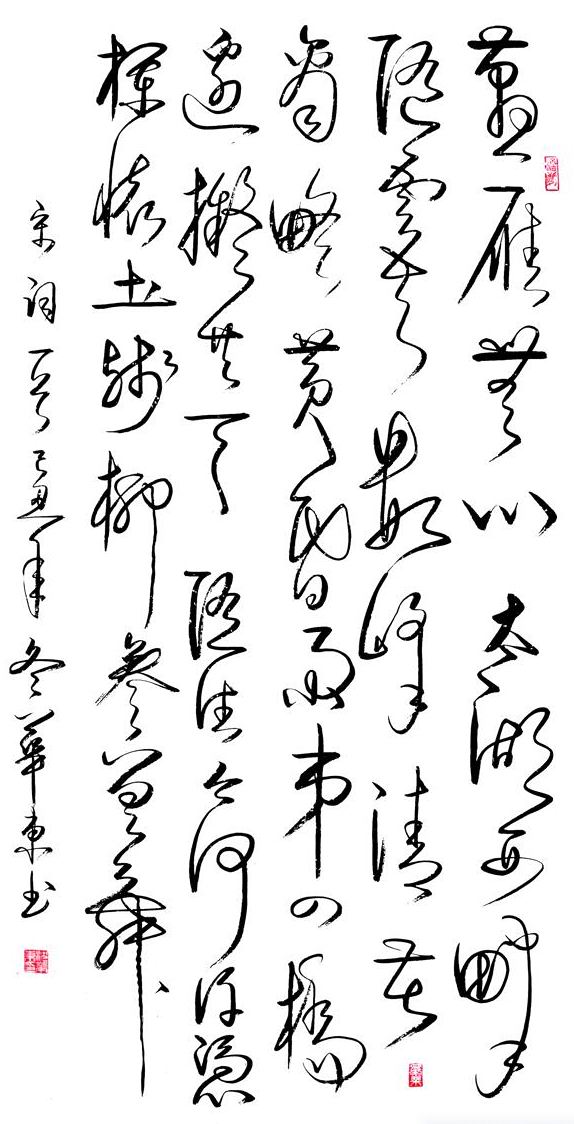 燕雁無心太湖西畔
隨雲去數峰清苦
商略黃昏雨第四橋
邊擬共天隨住今何許憑
欄懷古殘柳參差舞
宋詞一首己丑年冬華東書